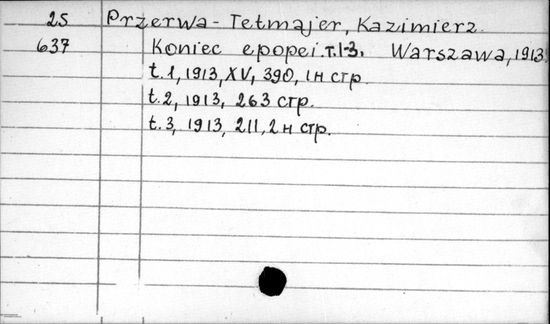 25 Przerwa-Tetmajer, Kazimierz.
637 Koniec epopei т.1-3. Warszawa, 1913.
t.1, 1913, XV, 390, 1н стр.
t.2, 1913, 263 стр.
t.3, 1913, 211, 2н стр.